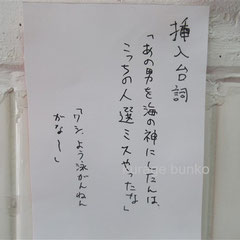 挿入台詞
「あの男を海の神にしたんは、
こっちの人選ミスやったな」
「ワシ、よう泳がんねん
がなー」
garage bunko